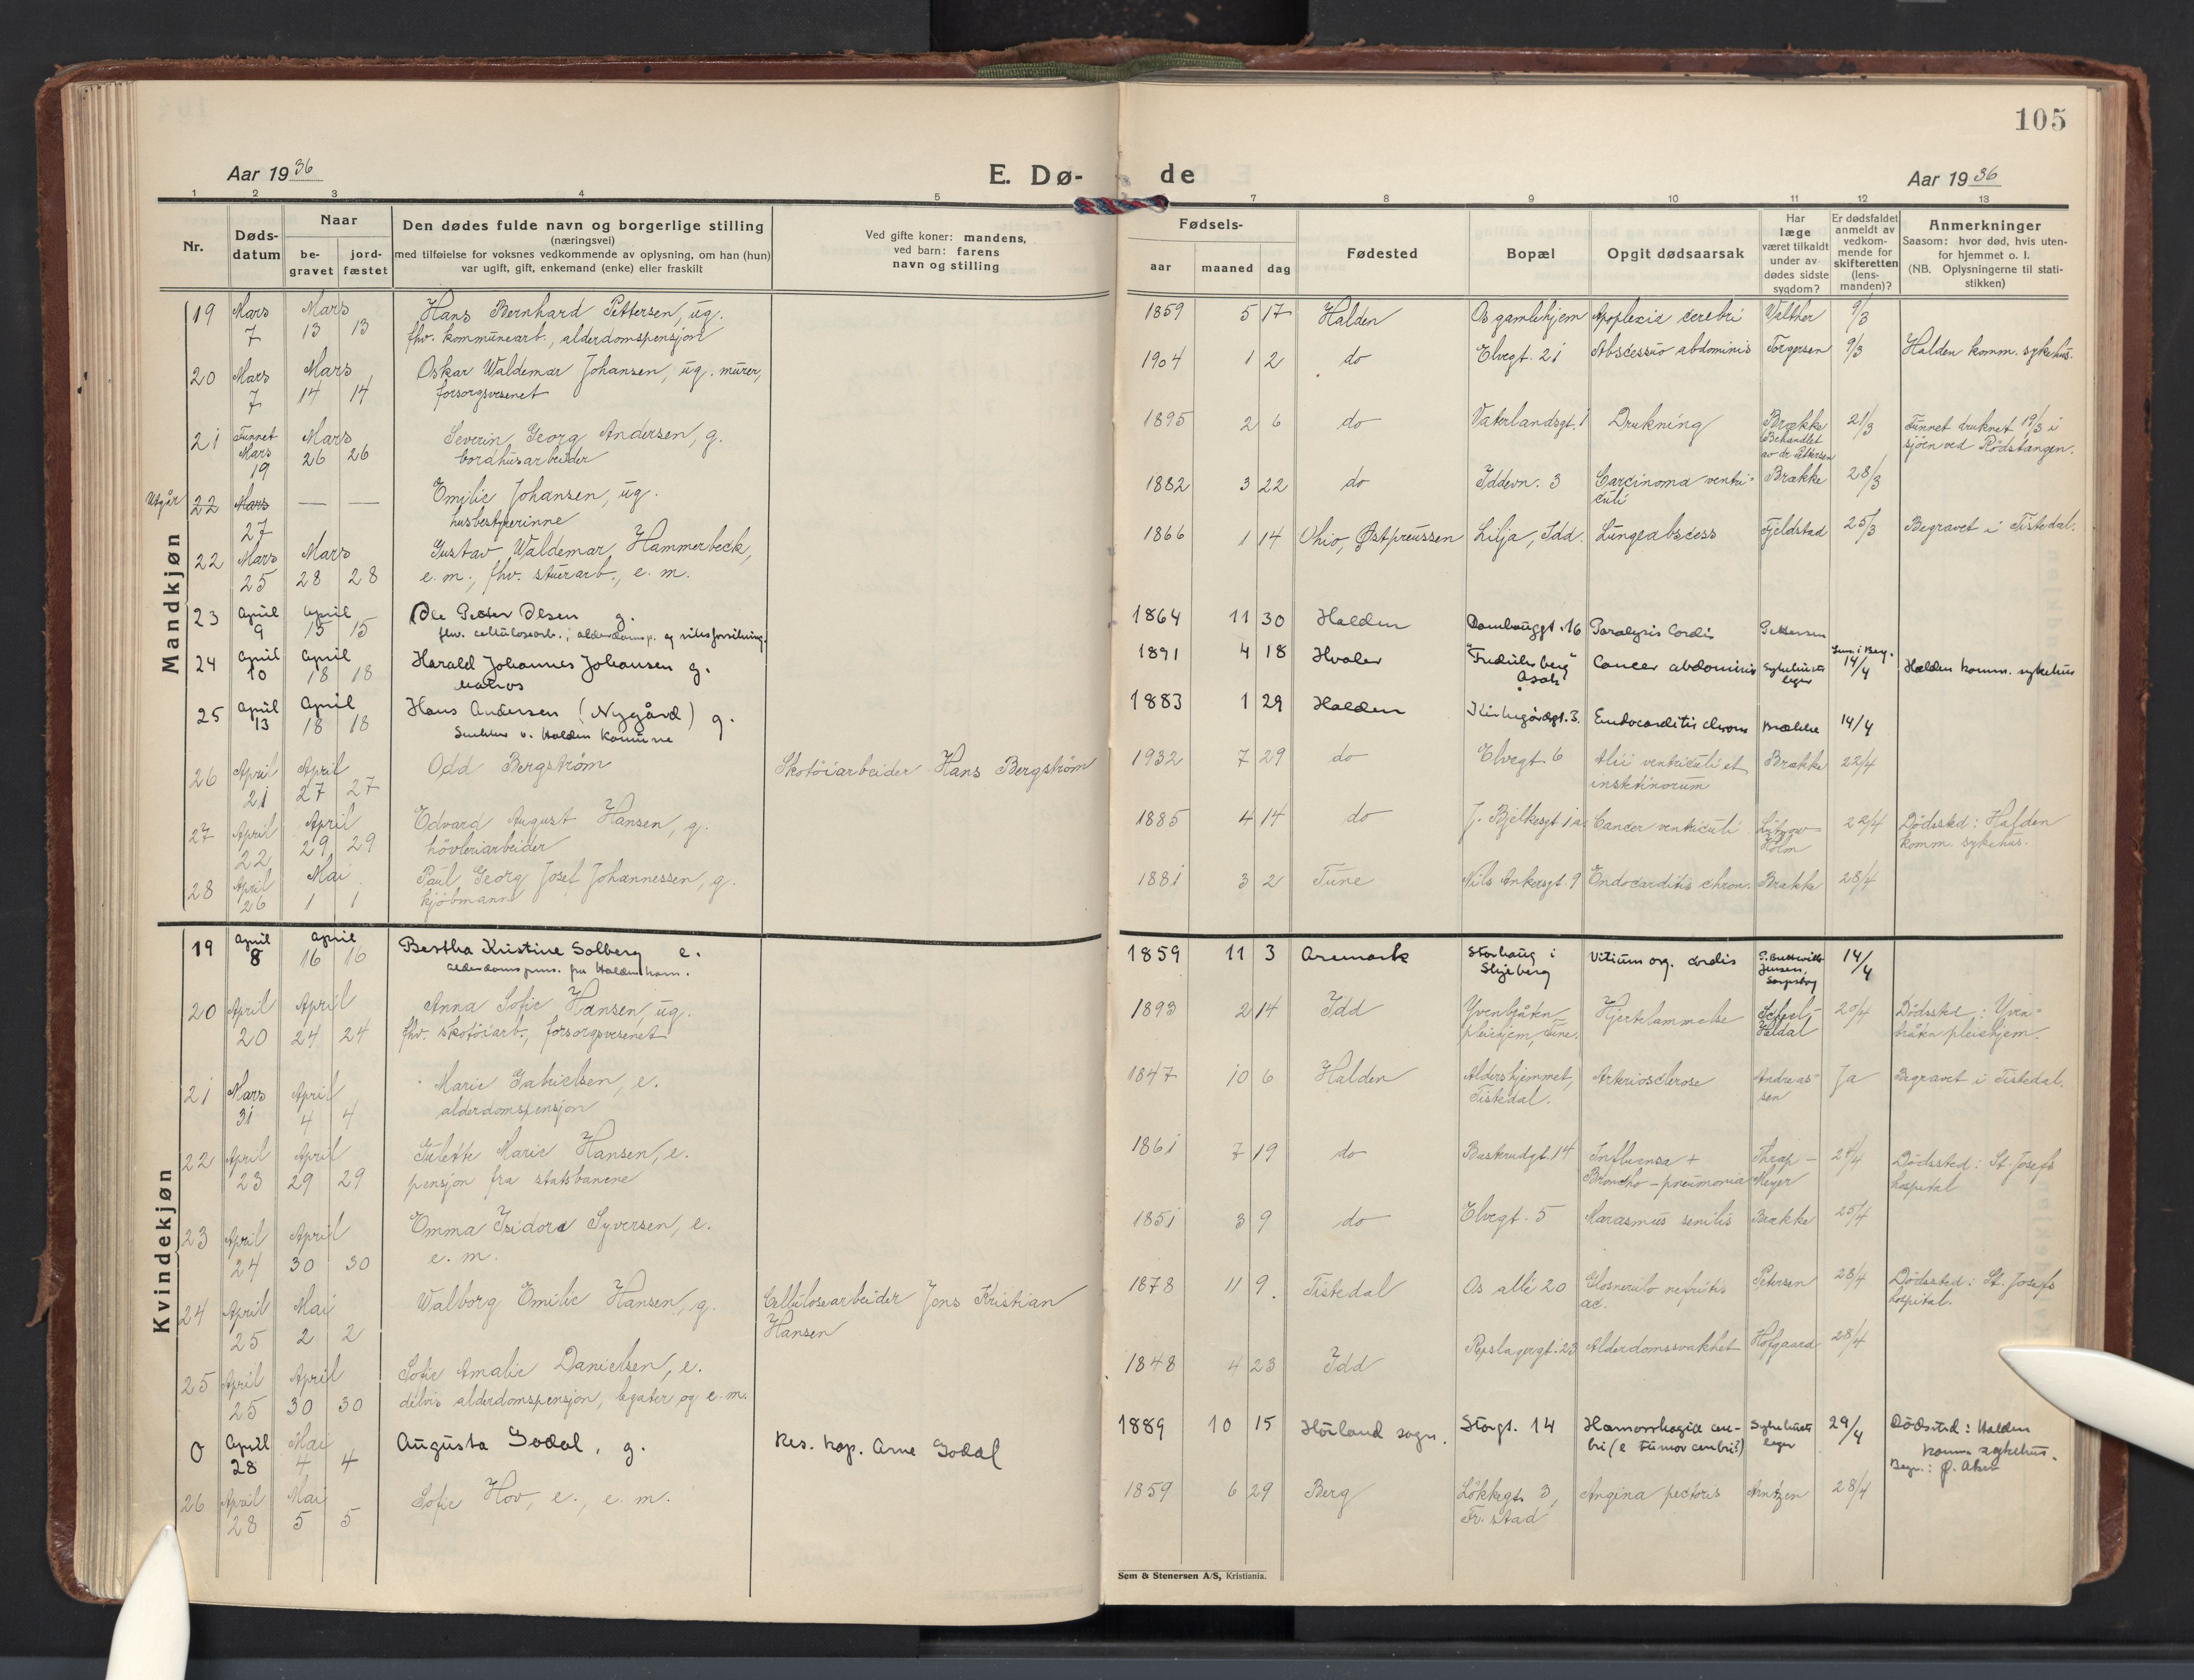 105
Aar 1936
E. Dø-
de
Aar 1936
1 2 3 4 5 7 8 9 10 11 12 13
Nr.
Døds-
datum
Naar
be-
gravet
jord-
fæstet
Den dødes fulde navn og borgerlige stilling
(næringsvei)
med tilføielse for voksnes vedkommende av oplysning, om han (hun)
var ugift, gift, enkemand (enke) eller fraskilt
Ved gifte koner: mandens,
ved barn: farens
navn og stilling
Fødsels-
aar maaned dag
Fødested
Bopæl
Opgit dødsaarsak
Har
læge
været tilkaldt
under av
dødes sidste
sygdom?
Er dødsfaldet
anmeldt av
vedkom-
mende for
skifteretten
(lens-
manden)?
Anmerkninger
Saasom: hvor død, hvis uten-
for hjemmet o. l.
(NB. Oplysningerne til stati-
stikken)
Mandkjøn
19 Mars Mars Hans Bernhard Pettersen, ug. 1859 5 17 Halden Os gamlehjem Apoplexia cerebri Walther 9/3
7 13 13 fhv. kommunearb., alderdomspensjon
20 Mars Mars Oskar Waldemar Johansen, ug. murer, 1904 1 2 do Elvegt. 21 Abscessus abdominis Torgersen 9/3 Halden komm. sykehus.
7 14 14 forsorgsvesenet
21 Funnet Mars Severin Georg Andersen, g. 1895 2 6 do Vaterlandsgt. 1 Drukning Brække 21/3 Funnet druknet 19/3 i
Mars 26 26 bordhusarbeider Behandlet sjöen ved Rödstangen.
19 av dr. Pettersen
Utgår 22 Mars — — Emilie Johansen, ug. 1882 3 22 do Iddevn. 3 Carcinoma ventri- Brække 28/3
27 husbestyrerinne culi
22 Mars Mars Gustav Waldemar Hammerbeck, 1866 1 14 Ohio, Østpreussen Lilja, Idd. Lungeabscess Fjeldstad 25/3 Begravet i Tistedal.
25 28 28 e. m., fhv. stuerarb., e. m.
23 April April Ole Petter Olsen g. 1864 11 30 Halden 16 Paralysis Cordis Pettersen
9 15 15 fhv. cellulosearb.; alderdomsp. og
24 April April Harald Johannes Johansen g. 1891 4 18 Hvaler "Fredriksberg" Cancer abdominis Sykehusets 14/4 Halden komm. sykehus
10 18 18 Matros Asak læge
25 April April Hans Andersen (Nygård) g. 1883 1 29 Halden Kirkegårdgt. 3. Endocarditis chron Brække 14/4
13 18 18 v. Halden Komune
26 April April Odd Bergström Skotöiarbeider Hans Bergström 1932 7 29 do Elvegt 6 ventriculi et Brække 22/4
21 27 27 insktinorum
27 April April Edvard August Hansen, g. 1885 4 14 do J. Bjelkesgt 1a Cancer ventriculi Lützow- 22/4 Dödssted: Halden
22 29 29 hövleriarbeider Holm komm. sykehus.
28 April Mai Paul Georg Josef Johannessen, g. 1881 3 2 Tune Nils Ankersgt. 9 Endocarditis chron. Brække 28/4
26 1 1 kjöbmann
Kvindekjøn
19 April April Bertha Kristine Solberg e. 1859 11 3 Aremark Storhaug i Vitium org. cordis 14/4
8 16 16 alderdomspens. fra Halden kom. Skjeberg Jensen, Sarpsborg
20 April April Anna Sofie Hansen, ug. 1893 2 14 Idd Yvenbråten Hjertelammelse Scheel- 20/4 Dödssted: Yven-
20 24 24 fhv. skotöiarb., forsorgsvesenet pleiehjem, Tune. Haldal bråten pleiehjem.
21 Mars April Marie Gabrielsen, e. 1847 10 6 Halden Aldershjemmet, Arteriosclerose Andreas- Ja Begravet i Tistedal.
31 4 4 alderdomspensjon Tistedal. sen
22 April April Gulette Marie Hansen, e. 1861 7 19 do Buskrudgt. 14 Influensa + Thrap- 24/4 Dödssted: St. Josefs
23 29 29 pensjon fra statsbanene Broncho-pneumonia Meyer hospital
23 April April Emma Isidora Syversen, e. 1851 3 9 do Elvegt. 5 Marasmus senilis Brække 25/4
24 30 30 e. m.
24 April Mai Walborg Emilie Hansen, g. Cellulosearbeider Jens Kristian 1878 11 9. Tistedal Os allé 20 Glomerulo nefritis Petersen 28/4 Dödssted: St. Josefs
25 2 2 Hansen ac. hospital.
25 April April Sofie Amalie Danielsen, e. 1848 4 23 Idd Repslagergt. 23 Alderdomssvakhet Hofgaard 28/4
25 30 30 delvis alderdomspensjon, legater og e. m.
0 April Mai Augusta Godal, g. Res. kap. Arne Godal 1889 10 15 Hörland sogn. Storgt. 14 Hæmorrhagia cere- Sykehusets 29/4 Dödssted: Halden
28 4 4 bri (e tumor cerebri?) læge komm. sykehus.
Begr.: Ø. Aker
26 April Mai Sofie Hov, e., e. m. 1859 6 29 Berg Lökkegt 3, Angina pectoris Arntzen 28/4
28 5 5 Fr. stad
Sem & Stenersen A/S, Kristiania.